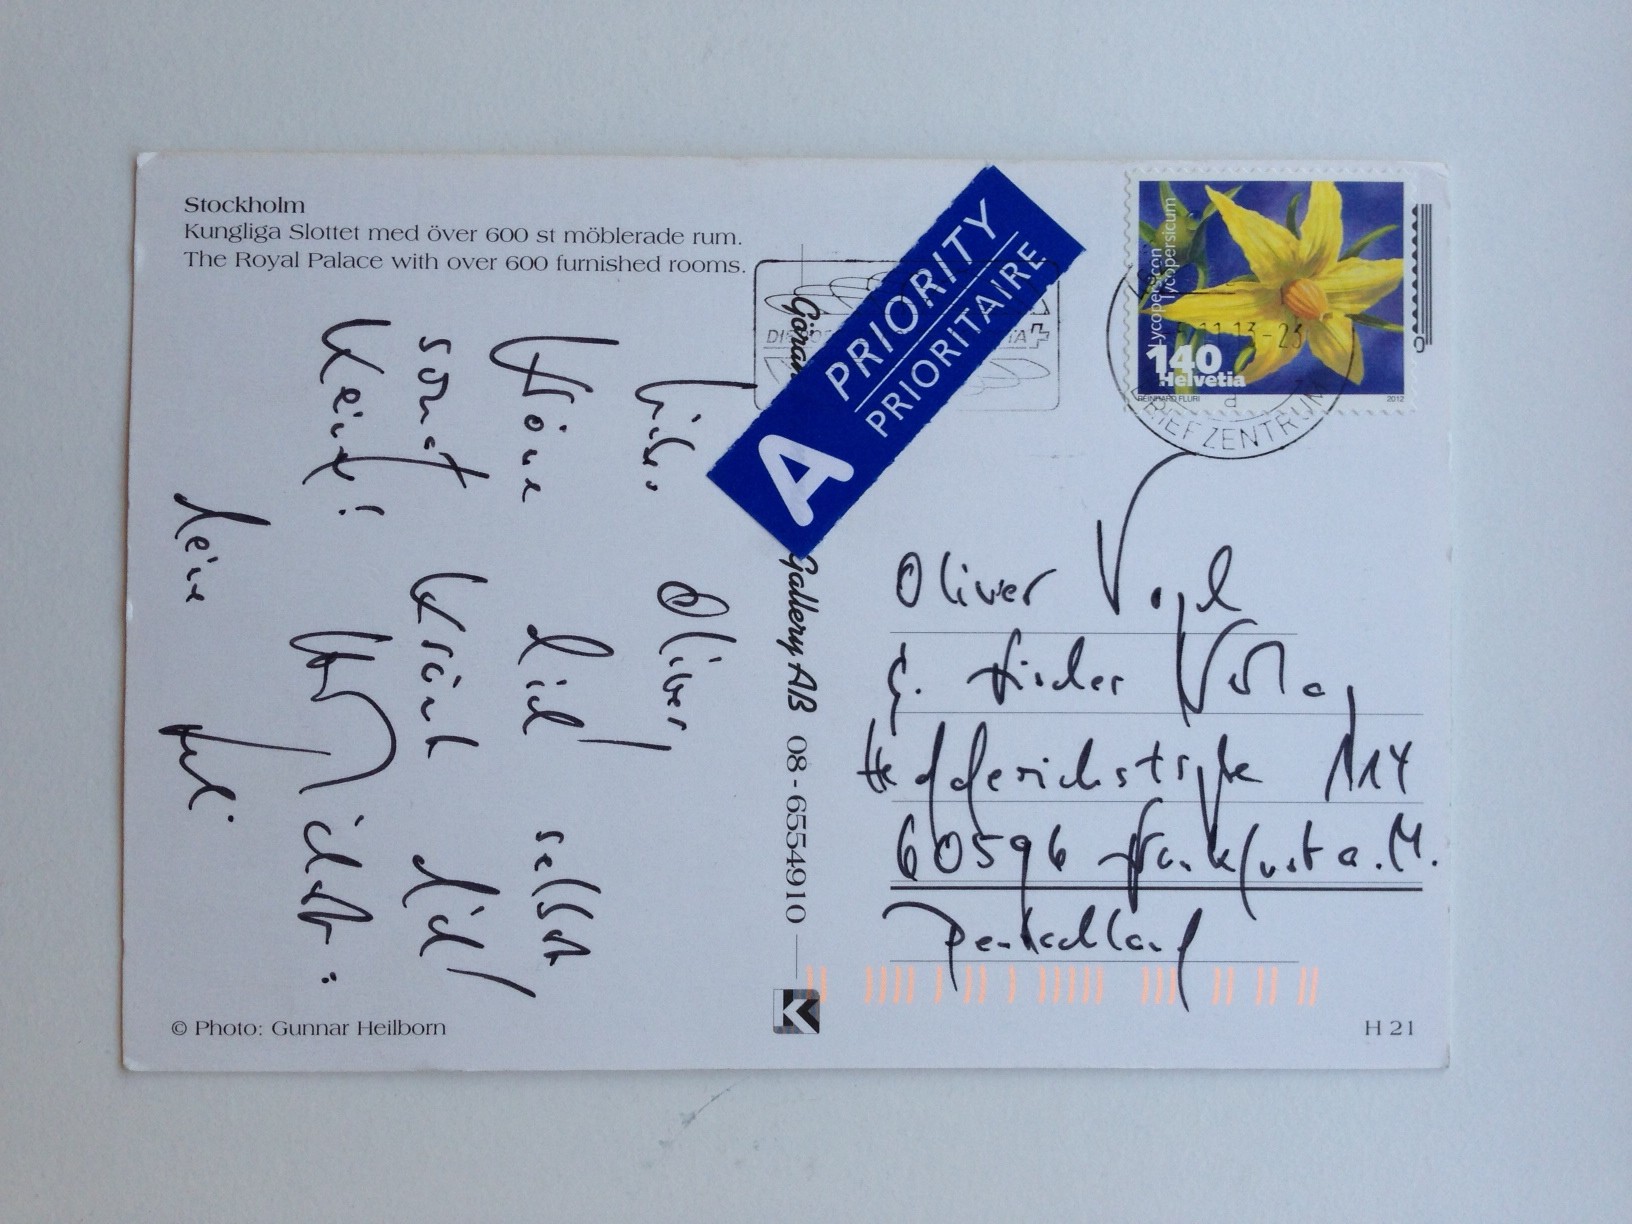 Stockholm
Kungliga Slottet med över 600 st möblerade rum.
The Royal Palace with over 600 furnished rooms.
Lieber Oliver,
kröne dich selbst
sonst krönt dich
keiner!
dein
Göran
Gallery AB 08-6554910
A PRIORITY
PRIORITAIRE
Lycopersicon
lycopersicum
140
Helvetia
REINHARD FLURI
2012
11.13-23
BRIEFZENTRUM
Oliver Vogel
S. Fischer Verlag
Hedderichstraße 114
60596 Frankfurt a.M.
Deutschland
K
© Photo: Gunnar Heilborn
H 21